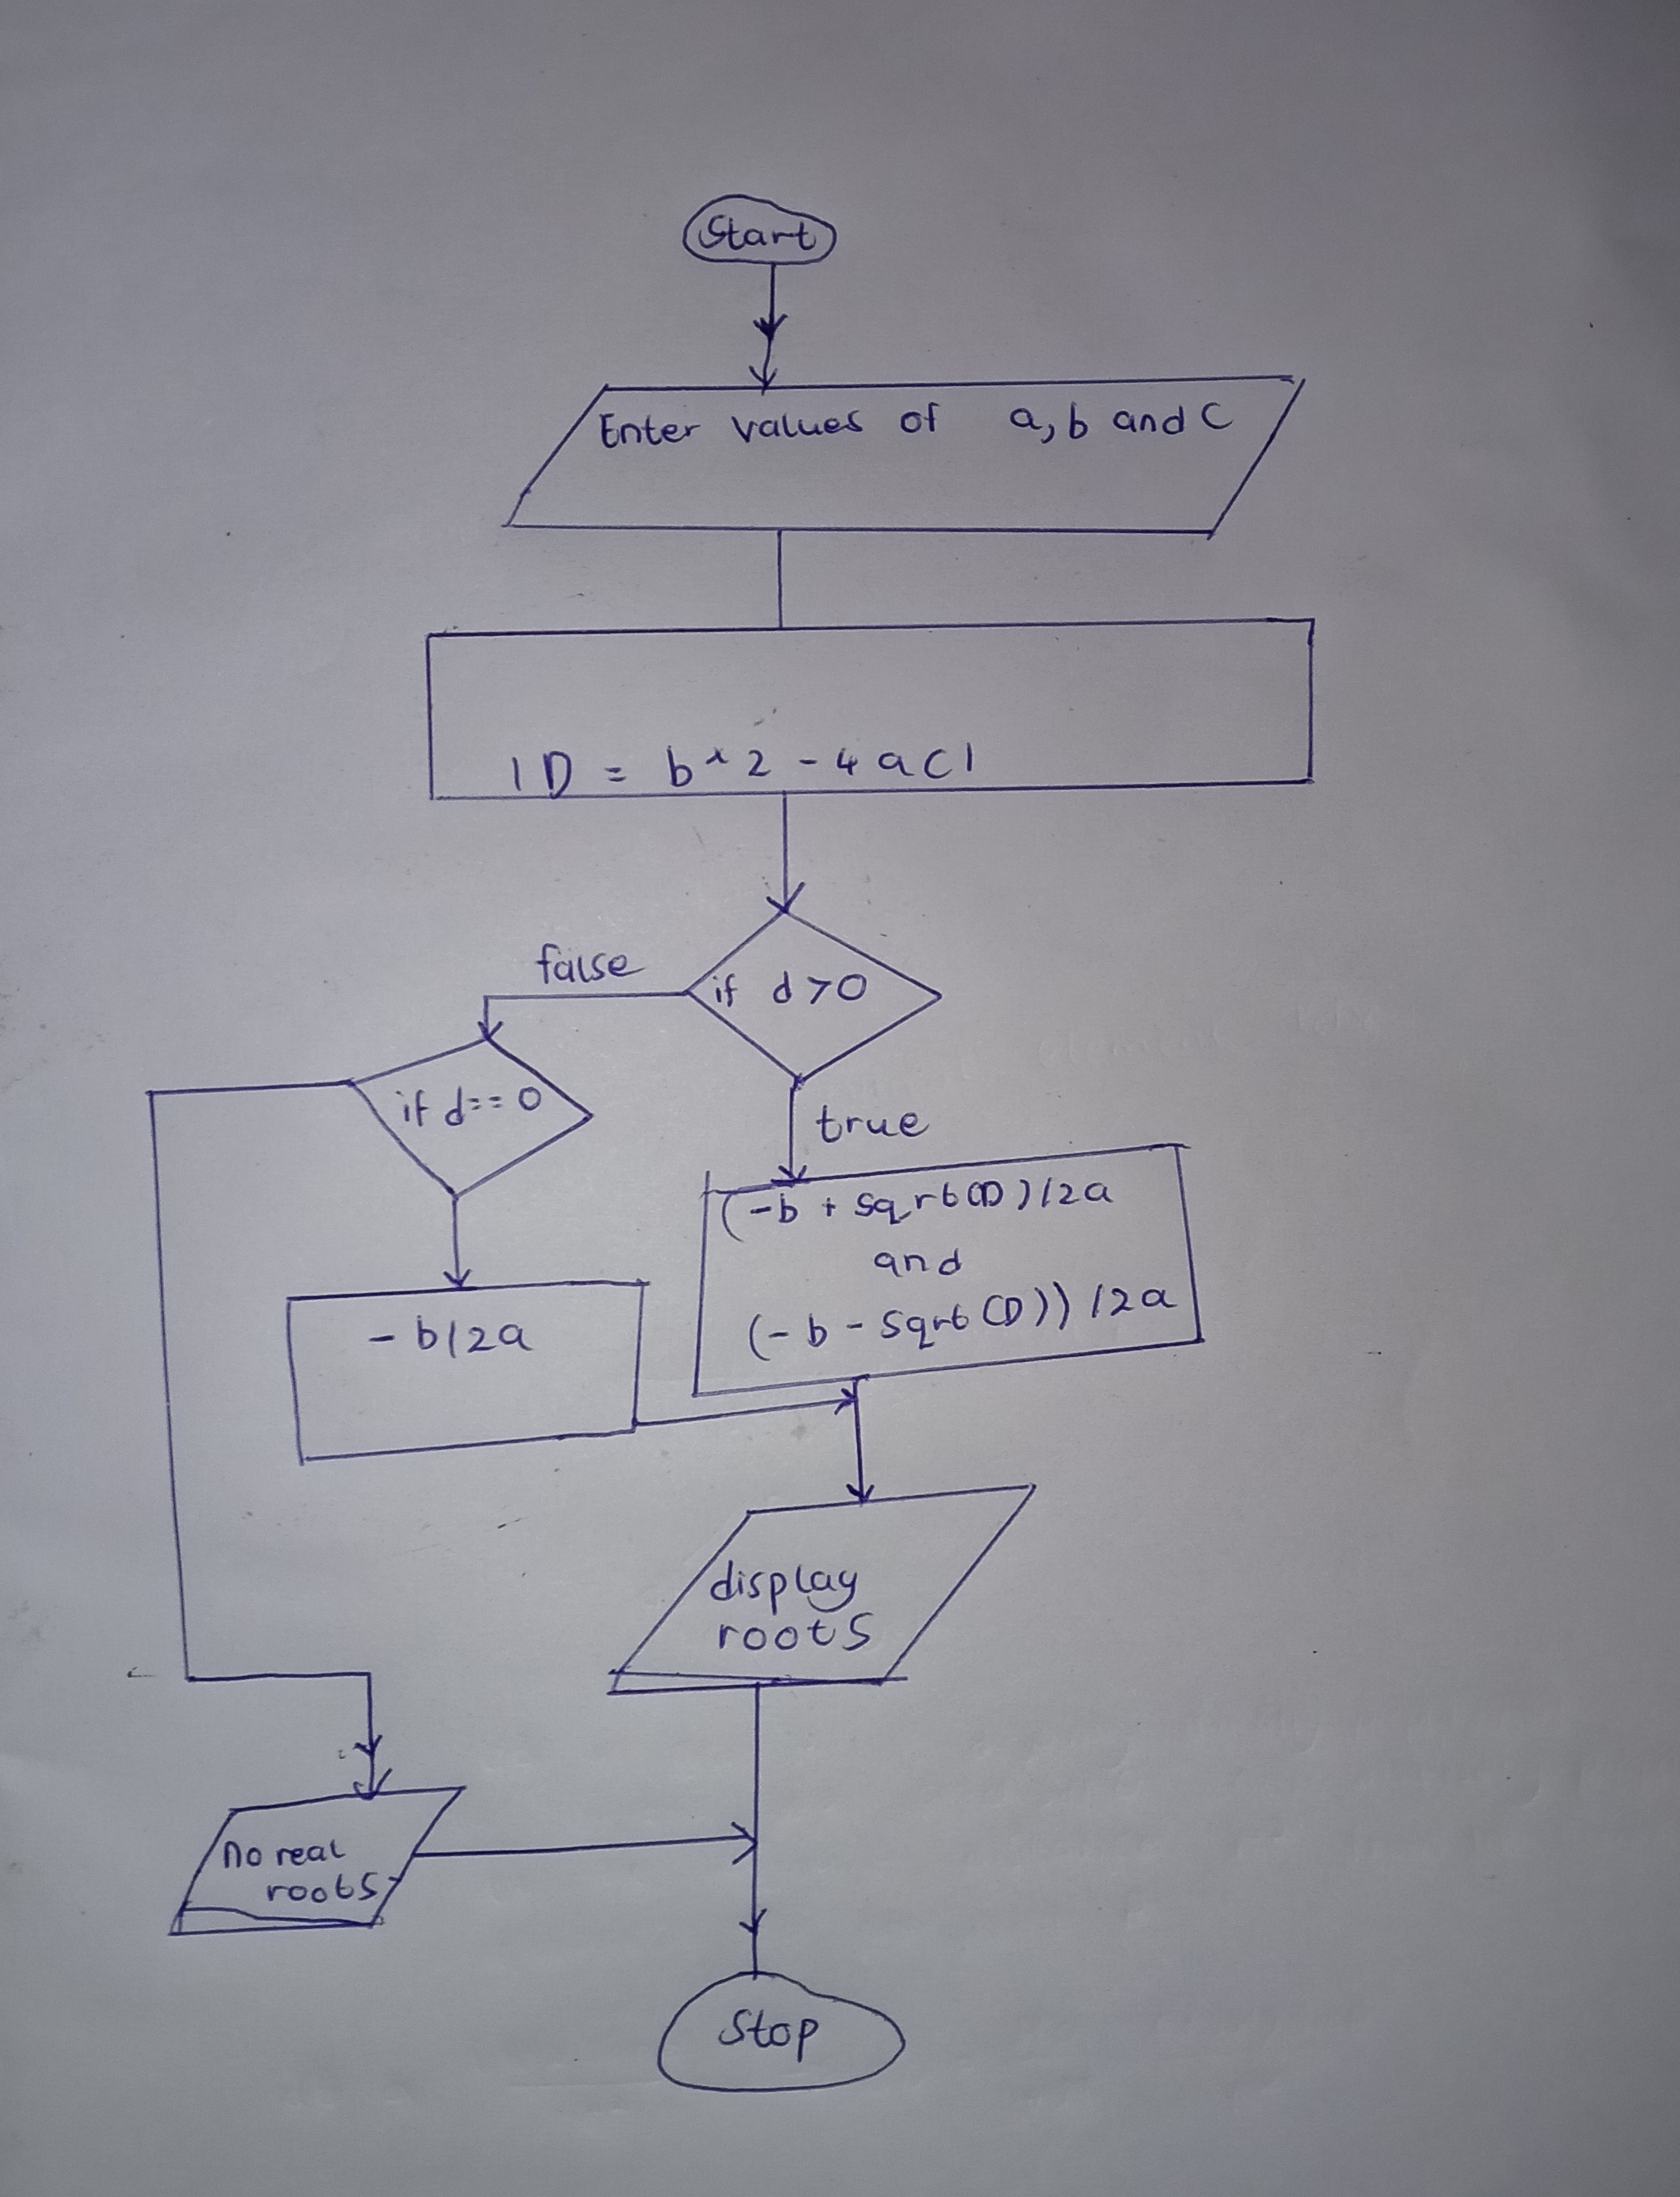 Start
Enter values of a, b and C
| D = b^2 - 4ac |
if d>0
false
true
if d==0
(-b + sqrt(D)/2a
and
(-b - sqrt(D))/2a
-b/2a
display
roots
no real
roots
Stop